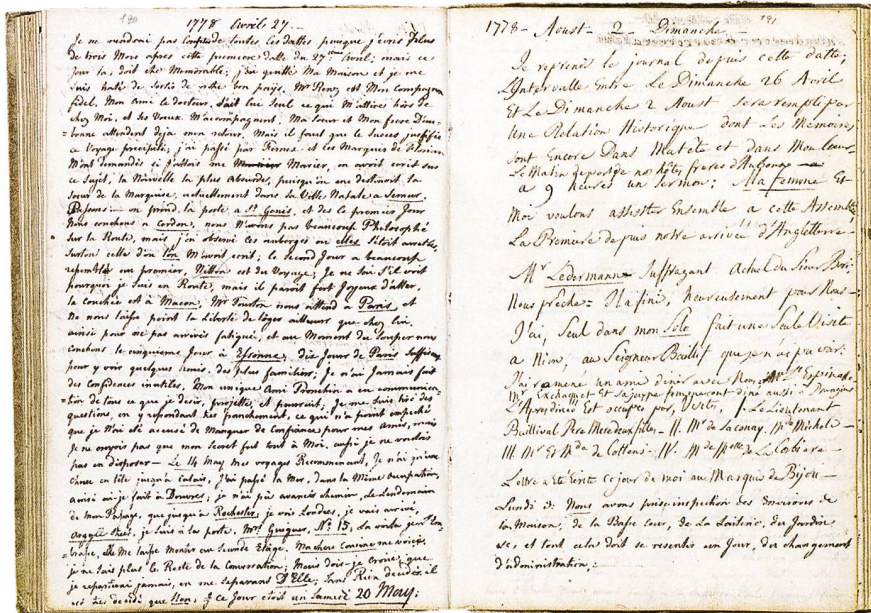 190
1778 Avril 27...
Je ne voudrai pas toutes les dattes puisque j'ecris plus
de trois Mois apres cette premiere datte du 27me Avril; mais ce
jour la, doit etre Memorable; j'ai quitté Ma Maison et je me
suis haté de sortir de notre bon païs. Mr Renz est Mon Compagnon
fidel. Mon Ami le docteur, sait lui seul ce qui M'attire hors de
chez Moi, et ses Voeux M'accompagnent. Ma Soeur et Mon frere
attendent deja mon retour, Mais il faut que le succes justifie
ce Voyage precipité; j'ai passé par et les Marquis de
M'ont demandés si j'allois me Marier, on avoit ecrit sur
ce sujet, la Nouvelle la plus absurde, puisqu'on me destinoit la
soeur de la Marquise, actuellement dans sa Ville Natale a
Passons — on prend la poste a St Genis, et des le premier Jour
Nous couchons a Cerdon, nous N'avons pas beaucoup Philosophé
sur la Route, mais j'ai observé les auberges ou elles s'etoit arretée,
surtout celle d'ou l'on M'avoit ecrit; le second Jour a beaucoup
ressemblé au premier, est du Voyage; Je ne sai s'il voit
pourquoi je suis en Route, mais il paroit fort Joyeux d'aller,
la couchée est à Macon, Mr nous attend a Paris, et
ne nous laisse point la liberté de loger ailleurs que chez lui,
ainsi pour ne pas arriver fatigué, et au Moment du souper nous
couchons le cinquieme Jour à Essonne, dix Jours de Paris
pour y voir quelques amis, des plus familiers; Je n'ai Jamais fait
des Confidences inutiles, Mon unique Ami Tronchin a eu communica-
=tion de tous ce que je desir, projette, et poursuit, Je me suis tiré des
questions, en y repondant sans panchement, ce qui n'a point empeché
que je N'ai eté accusé de Manquer de Confiance pour mes amis, mais
Je ne croyois pas que mon Secret fut tout à Moi, aussi je ne voulois
pas en disposer — Le 14 May mes voyages Recommencent, Je n'ai qu'une
Chose en tête jusqu'a Calais, J'ai passé la Mer, dans la Même occupation,
ainsi ai-je fait à Douvre; je n'ai pas avancé chemin, le Lendemain
de mon Passage, que jusqu'a Rochester, je vois Londres, je vais arrivé,
Argyle Street, je suis à la porte. Mrs Guiguer, No 15, la voila je
me laisse Monter au Second Etage. Ma chere Cousine me voici,
je ne sais plus le Reste de la Conversation; Mais dois-je croire, que
je repartirai jamais, en me separans D'Elle, sans Rien decider, il
est tres decidé que Non. & ce Jour etoit un Samedi 20 May;
191
1778 - Aoust - 2 - Dimanche -
Je reprends le journal depuis cette datte,
L'Intervalle Entre Le Dimanche 26 Avril
Et Le Dimanche 2 Aoust sera rempli par
Une Relation Historique dont Les Memoires
sont Encore Dans Ma tete et dans Mon Coeur
Le Matin depart de nos hôtes freres d'Aubonne
a 9 heures un Sermon; Ma femme Et
Moi voulons assister Ensemble a cette Assemblée
La Premiere depuis notre arrivée d'Angleterre -
Mr Ledermann Suffragant Actuel du Sieur
Nous prêche = Il a fini, heureusement pour Nous -
J'ai, Seul dans mon Solo fait une Seule Visite
a Nion, au Seigneur Baillif que je n'ai pas vu:
J'ai ramené un ami diner avec Nous: Mr St Espinasse
Mr Exchaquet Et sa jeune femme ont diné aussi à Prangins
L'Apresdinée Est occupée par, Visite, I. Le Lieutenant
Baillival Pere Mere deux filles - II. Mr De Lasconay. Mlle Michel -
III. Mr Et Me de Cottens - IV. Mr de
Lettre a Eté Ecrite ce jour de moi au Marquis de Bijou -
Lundi 3. Nous avons pris inspection des Environs de
la Maison, de la Basse Cour, de La Laiterie, du Jardin
&c, et tout cela doit se ressentir un Jour, du changement
d'administration,: